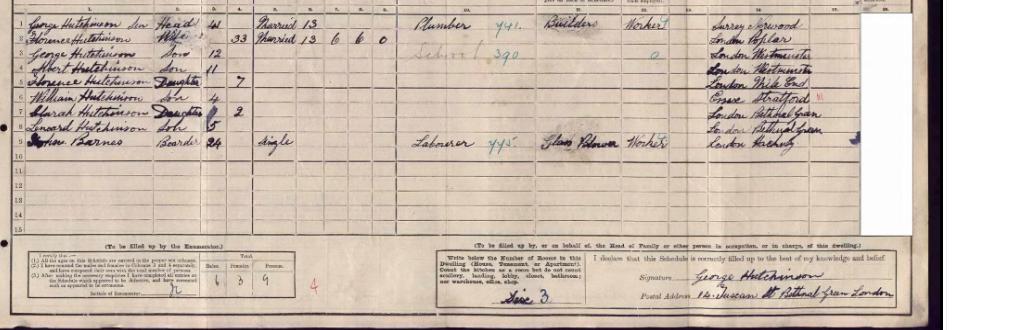 1 George Hutchinson Sen Head 41 Married 13 Plumber 741 Builders Worker Surrey Norwood
2 Florence Hutchinson Wife 33 Married 13 6 6 0 London Poplar
3 George Hutchinson Son 12 School 390 0 London Westminster
4 Albert Hutchinson Son 11 London Westminster
5 Florence Hutchinson Daughter 7 London Mile End
6 William Hutchinson Son 4 Essex Stratford
7 Sarah Hutchinson Daughter 2 London Bethnal Green
8 Leonard Hutchinson Son 5 London Bethnal Green
9 Barnes Boarder 24 Single Labourer 775 Glass Blower Worker London Hackney
10
11
12
13
14
15
(To be filled up by the Enumerator.)
(To be filled up by, or on behalf of, the Head of Family or other person in occupation, or in charge, of this dwelling.)
I certify that:—
(1.) All the ages on this Schedule are entered in the proper sex columns.
(2.) I have counted the males and females in Columns 3 and 4 separately, and have compared their sum with the total number of persons.
(3.) After making the necessary enquiries I have completed all entries on the Schedule which appeared to be defective, and have corrected such as appeared to be erroneous.
Initials of Enumerator
Total.
Males. Females. Persons.
6 3 9
4
Write below the Number of Rooms in this Dwelling (House, Tenement, or Apartment). Count the kitchen as a room but do not count scullery, landing, lobby, closet, bathroom; nor warehouse, office, shop.
3
I declare that this Schedule is correctly filled up to the best of my knowledge and belief.
Signature George Hutchinson
Postal Address 14 Tuscan St Bethnal Green London